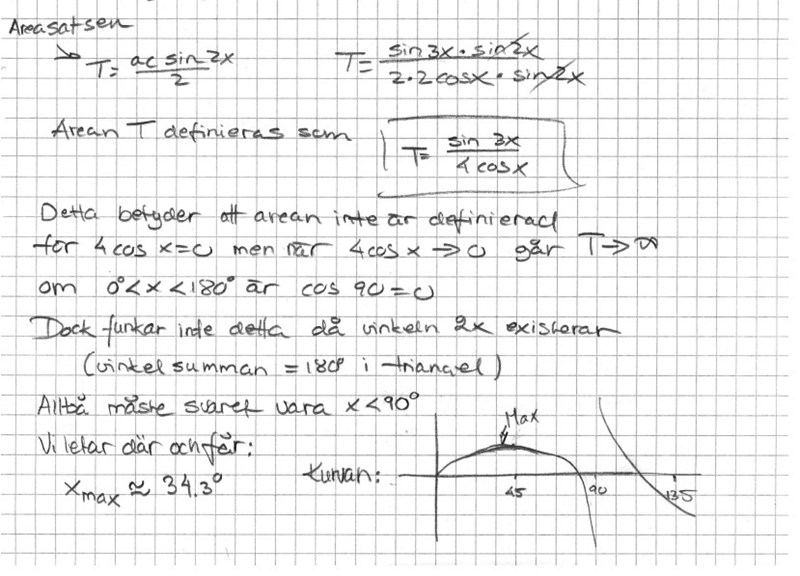 Areasatsen
T = ac sin 2x / 2
T = sin 3x · sin 2x / 2·2cosx · sin 2x
Arean T definieras som
T = sin 3x / 4 cos x
Detta betyder att arean inte är definierad
för 4 cos x = 0 men när 4 cos x → 0 går T → ∞
om 0° < x < 180° är cos 90 = 0
Dock funkar inte detta då vinkeln 2x existerar
(vinkel summan = 180° i triangel)
Alltså måste svaret vara x < 90°
Vi letar där och får:
x max ≈ 34.3°
Kurvan:
Max
45
90
135